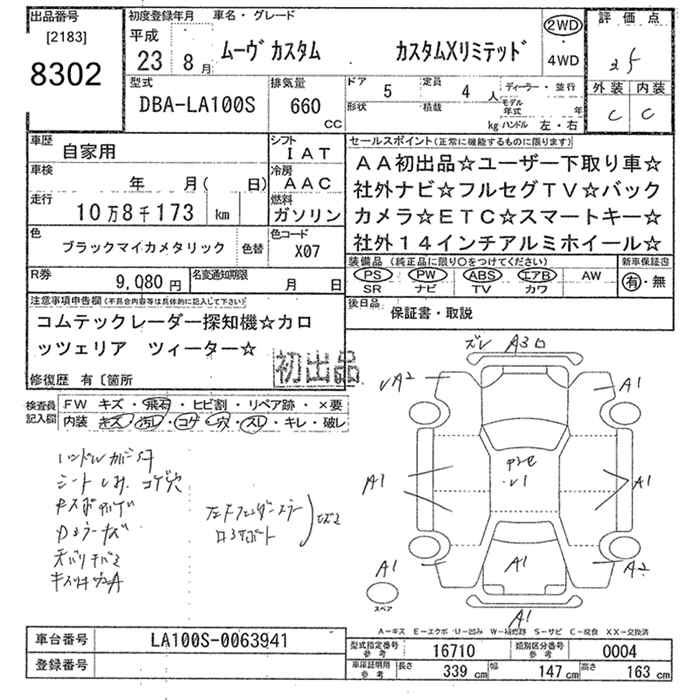 出品番号
[2183]
8302
初度登録年月 車名・グレード
平成
23 8 月
ムーヴ カスタム カスタムXリミテッド
2WD
・
4WD
評価点
外装 内装
C C
型式
DBA-LA100S
排気量
660
CC
ドア 5 定員 4 人
形状 積載 kg
ディーラー・並行
モデル
年式 年
ハンドル 左・右
車歴
自家用
シフト
IAT
車検
年 月( 日)
冷房
AAC
走行
10万8千173 km
燃料
ガソリン
色
ブラックマイカメタリック 色替
色コード
X07
R券
9,080 円
名変通知期限
月 日
セールスポイント(正常に機能するものに限ります)
AA初出品☆ユーザー下取り車☆
社外ナビ☆フルセグTV☆バック
カメラ☆ETC☆スマートキー☆
社外14インチアルミホイール☆
装備品(純正品に限り○をつけてください)
PS PW ABS エアB AW
SR ナビ TV カワ
新車保証書
有・無
後日品
保証書・取説
注意事項申告欄(不具合内容等は具体的に記入して下さい)
コムテックレーダー探知機☆カロ
ッツェリア ツィーター☆
初出品
修復歴 有〔箇所
検査員
記入欄
FW キズ・飛石・ヒビ割・リペア跡・×要
内装 キズ・汚レ・コゲ・穴・スレ・キレ・破レ
ズレ A3
A2
A1
A1
A1
A1
A1
A2
A1
スペア
A-キズ E-エクボ U-凹み W-補修跡 S-サビ C-腐食 XX-交換済
車台番号
LA100S-0063941
登録番号
型式指定番号
参考
16710
類別区分番号
参考
0004
車庫証明用
参考
長さ 339 cm 幅 147 cm 高さ 163 cm